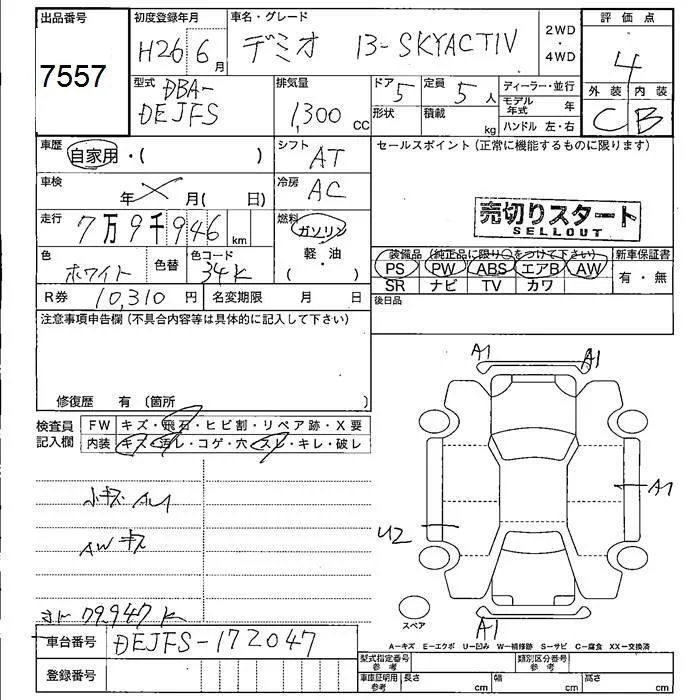 出品番号
7557
初度登録年月
H26 6月
車名・グレード
デミオ 13-SKYACTIV
2WD
・
4WD
評価点
4
外装 内装
C B
型式
DBA-
DEJFS
排気量
1,300 cc
ドア 5
形状
定員 5 人
積載 kg
ディーラー・並行
モデル
年式 年
ハンドル 左・右
車歴 自家用・( )
シフト AT
セールスポイント(正常に機能するものに限ります)
車検 年 月( 日)
冷房 AC
売切りスタート
SELLOUT
走行 7万9千946 km
燃料 ガソリン
軽・油
( )
色 ホワイト 色替
色コード 34K
装備品(純正品に限り○をつけて下さい)
新車保証書
PS PW ABS エアB AW
有・無
SR ナビ TV カワ
R券 10,310 円
名変期限 月 日
後日品
注意事項申告欄(不具合内容等は具体的に記入して下さい)
修復歴 有(箇所 )
検査員
記入欄
FW キズ・飛石・ヒビ割・リペア跡・X要
内装 キズ・汚レ・コゲ・穴・スレ・キレ・破レ
A1 A1
A1
U2
A1
AWキズ
79,947K
スペア
A−キズ E−エクボ U−凹み W−補修跡 S−サビ C−腐食 XX−交換済
車台番号 DEJFS-172047
登録番号
型式指定番号
参考
類別区分番号
参考
車庫証明用
参考
長さ cm
幅 cm
高さ cm